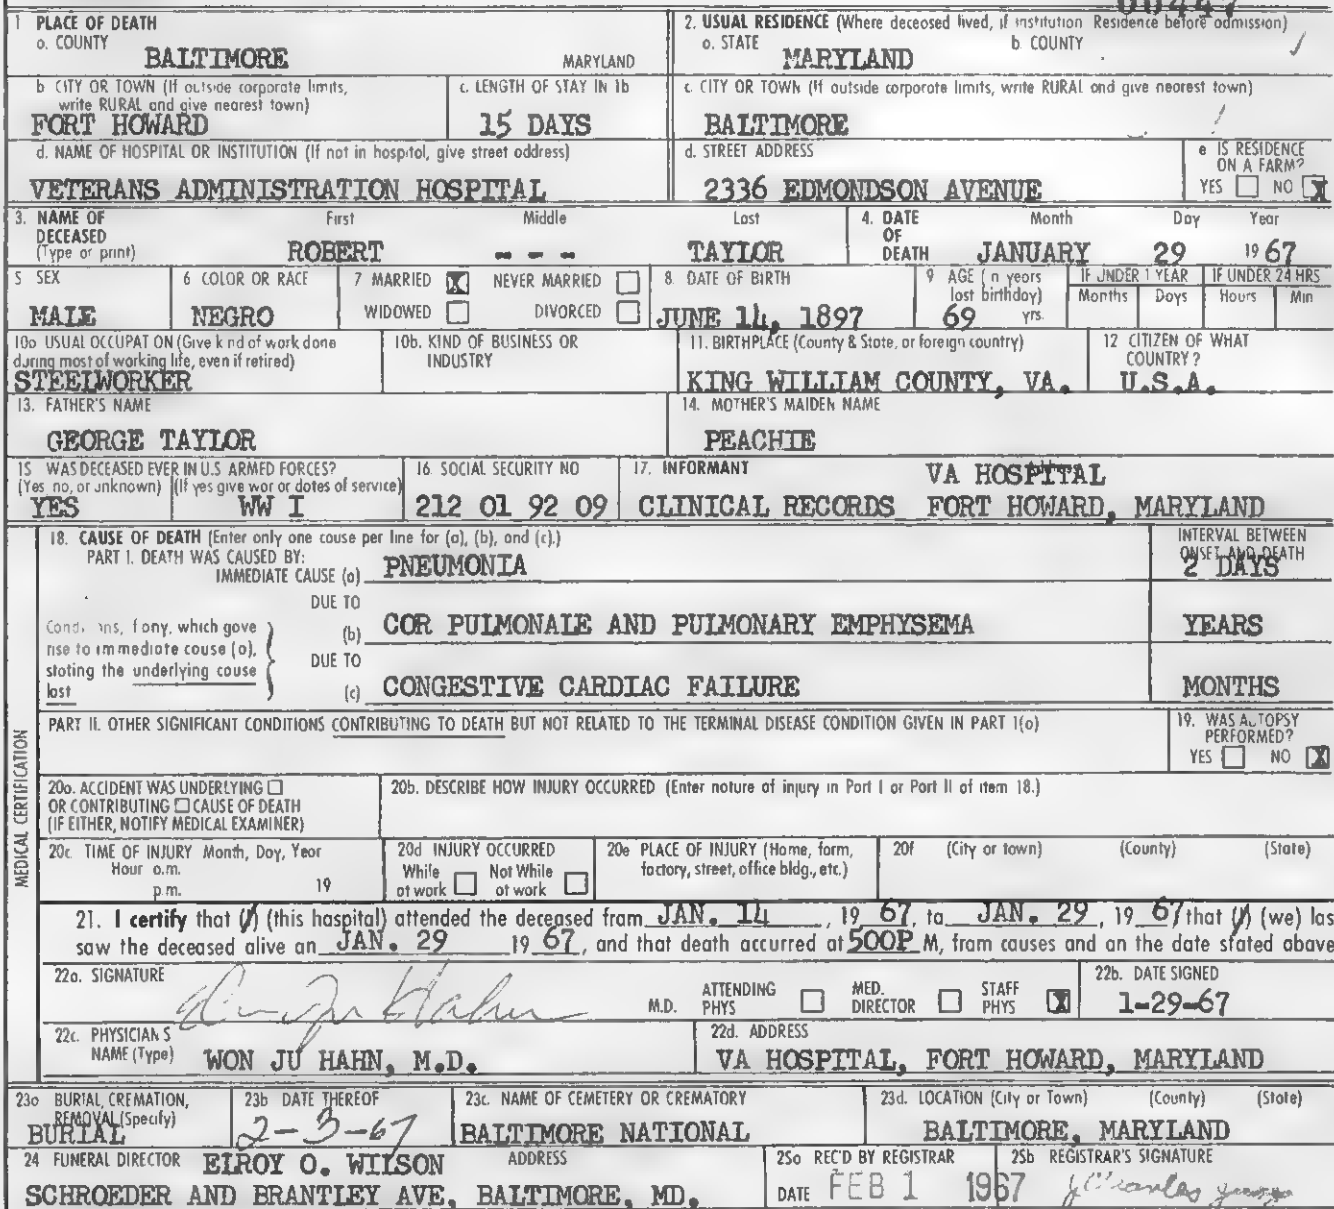 00447
1 PLACE OF DEATH
a. COUNTY
BALTIMORE MARYLAND
2. USUAL RESIDENCE (Where deceased lived, if institution Residence before admission)
a. STATE b COUNTY
MARYLAND
b CITY OR TOWN (If outside corporate limits, write RURAL and give nearest town)
FORT HOWARD
c. LENGTH OF STAY IN 1b
15 DAYS
c. CITY OR TOWN (If outside corporate limits, write RURAL and give nearest town)
BALTIMORE
d. NAME OF HOSPITAL OR INSTITUTION (If not in hospital, give street address)
VETERANS ADMINISTRATION HOSPITAL
d. STREET ADDRESS
2336 EDMONDSON AVENUE
e IS RESIDENCE ON A FARM?
YES NO X
3. NAME OF DECEASED (Type or print)
First Middle Last
ROBERT - - - TAYLOR
4. DATE OF DEATH
Month Day Year
JANUARY 29 1967
5 SEX
MALE
6 COLOR OR RACE
NEGRO
7 MARRIED X NEVER MARRIED
WIDOWED DIVORCED
8. DATE OF BIRTH
JUNE 14, 1897
9 AGE (In years last birthday)
69 yrs.
IF UNDER 1 YEAR
Months Days
IF UNDER 24 HRS
Hours Min
10a USUAL OCCUPATION (Give kind of work done during most of working life, even if retired)
STEELWORKER
10b. KIND OF BUSINESS OR INDUSTRY
11. BIRTHPLACE (County & State, or foreign country)
KING WILLIAM COUNTY, VA.
12 CITIZEN OF WHAT COUNTRY?
U.S.A.
13. FATHER'S NAME
GEORGE TAYLOR
14. MOTHER'S MAIDEN NAME
PEACHIE
15 WAS DECEASED EVER IN U.S. ARMED FORCES?
(Yes no, or unknown) (If yes give war or dates of service)
YES WW I
16 SOCIAL SECURITY NO
212 01 92 09
17. INFORMANT Address
VA HOSPITAL
CLINICAL RECORDS FORT HOWARD, MARYLAND
MEDICAL CERTIFICATION
18. CAUSE OF DEATH (Enter only one cause per line for (a), (b), and (c).)
PART I. DEATH WAS CAUSED BY:
IMMEDIATE CAUSE (a) PNEUMONIA
INTERVAL BETWEEN ONSET AND DEATH
2 DAYS
Conditions, if any, which gave rise to immediate cause (a), stating the underlying cause last
DUE TO
(b) COR PULMONALE AND PULMONARY EMPHYSEMA YEARS
DUE TO
(c) CONGESTIVE CARDIAC FAILURE MONTHS
PART II. OTHER SIGNIFICANT CONDITIONS CONTRIBUTING TO DEATH BUT NOT RELATED TO THE TERMINAL DISEASE CONDITION GIVEN IN PART I(a)
19. WAS AUTOPSY PERFORMED?
YES NO X
20a. ACCIDENT WAS UNDERLYING
OR CONTRIBUTING CAUSE OF DEATH
(IF EITHER, NOTIFY MEDICAL EXAMINER)
20b. DESCRIBE HOW INJURY OCCURRED (Enter nature of injury in Part I or Part II of item 18.)
20c. TIME OF INJURY Month, Day, Year
Hour a.m.
p.m. 19
20d INJURY OCCURRED
While at work Not While at work
20e PLACE OF INJURY (Home, farm, factory, street, office bldg., etc.)
20f (City or town) (County) (State)
21. I certify that (I) (this hospital) attended the deceased from JAN. 14, 19 67, to JAN. 29, 19 67 that (I) (we) las
saw the deceased alive on JAN. 29 19 67, and that death occurred at 500P M, from causes and on the date stated above
22a. SIGNATURE
Won Ju Hahn M.D.
ATTENDING PHYS MED. DIRECTOR STAFF PHYS X
22b. DATE SIGNED
1-29-67
22c. PHYSICIAN'S NAME (Type)
WON JU HAHN, M.D.
22d. ADDRESS
VA HOSPITAL, FORT HOWARD, MARYLAND
23a BURIAL, CREMATION, REMOVAL (Specify)
BURIAL
23b DATE THEREOF
2-3-67
23c. NAME OF CEMETERY OR CREMATORY
BALTIMORE NATIONAL
23d. LOCATION (City or Town) (County) (State)
BALTIMORE, MARYLAND
24 FUNERAL DIRECTOR ADDRESS
ELROY O. WILSON
SCHROEDER AND BRANTLEY AVE, BALTIMORE, MD.
25a REC'D BY REGISTRAR
DATE FEB 1 1967
25b REGISTRAR'S SIGNATURE
Charles